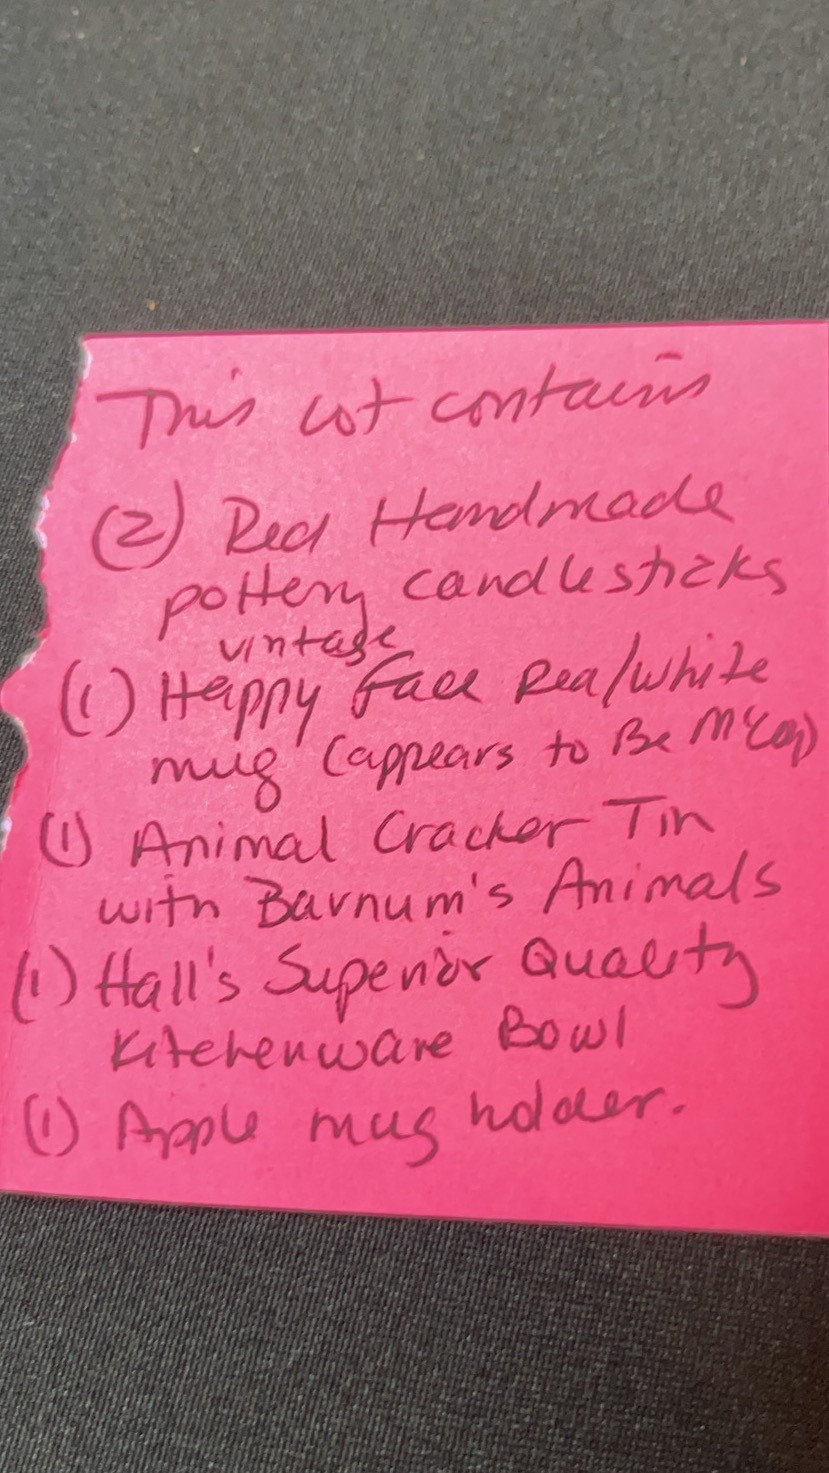 This Lot contains
(2) Red Handmade
pottery candlesticks
vintage
(1) Happy Face Red/white
mug (appears to Be McCoy)
(1) Animal Cracker Tin
with Barnum's Animals
(1) Hall's Superior Quality
Kitchenware Bowl
(1) Apple mug holder.